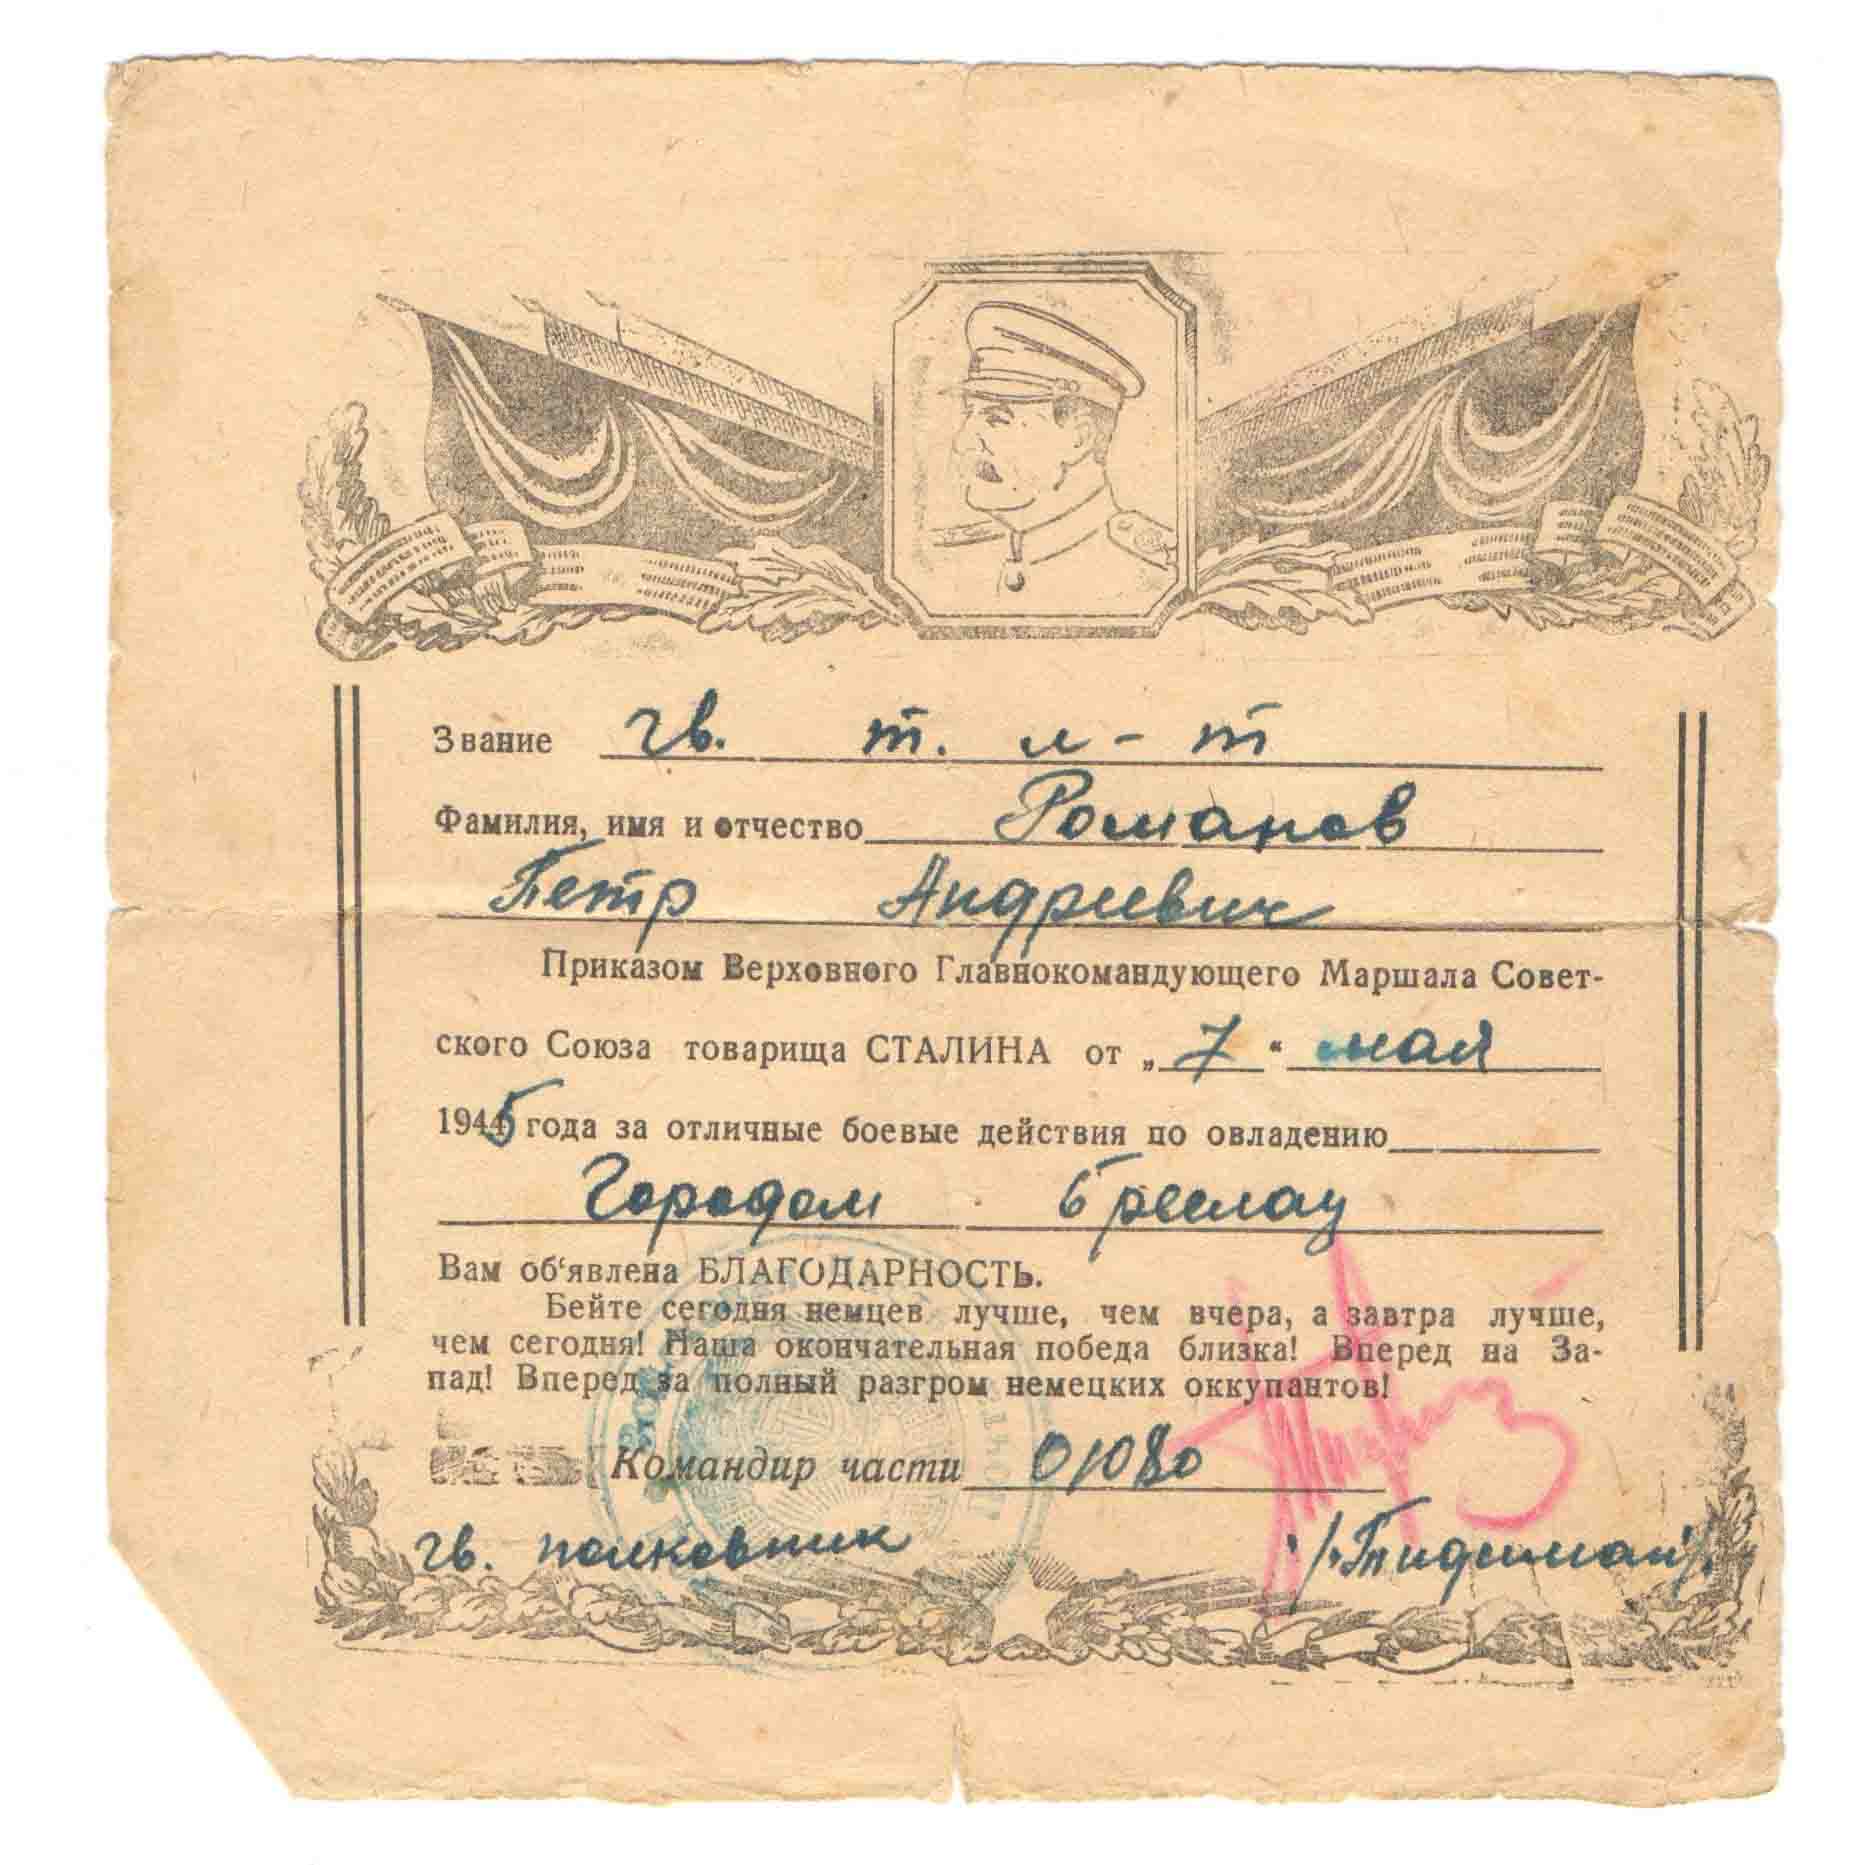 Звание гв. т. л-т
Фамилия, имя и отчество Романов
Петр Андреевич
Приказом Верховного Главнокомандующего Маршала Совет-
ского Союза товарища СТАЛИНА от „7“ мая
1945 года за отличные боевые действия по овладению
Городом Бреслау
Вам об'явлена БЛАГОДАРНОСТЬ.
Бейте сегодня немцев лучше, чем вчера, а завтра лучше,
чем сегодня! Наша окончательная победа близка! Вперед на За-
пад! Вперед за полный разгром немецких оккупантов!
Командир части 01080
гв. полковник